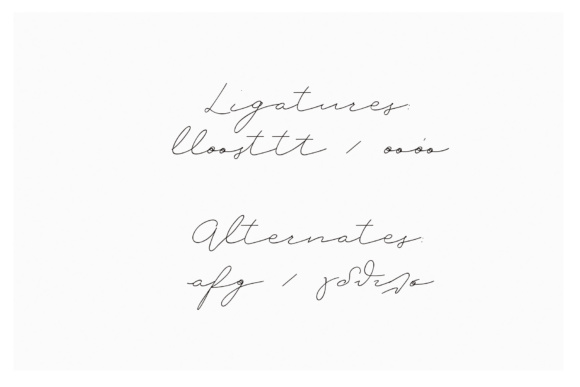 Ligatures:
lloosttt / οοόο
Alternates:
afg /